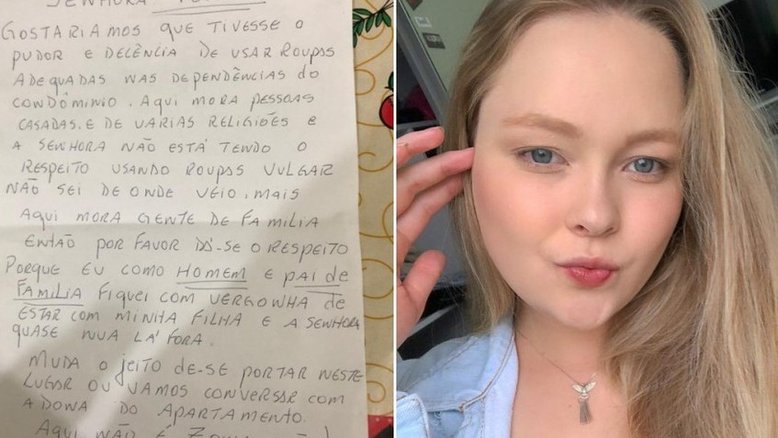 SENHORA
GOSTARIAMOS QUE TIVESSE O
PUDOR E DECÊNCIA DE USAR ROUPAS
ADEQUADAS NAS DEPENDÊNCIAS DO
CONDÔMINIO. AQUI MORA PESSOAS
CASADAS. E DE VARIAS RELIGIÕES E
A SENHORA NÃO ESTÁ TENDO O
RESPEITO USANDO ROUPAS VULGAR
NÃO SEI DE ONDE VEIO. MAIS
AQUI MORA GENTE DE FAMILIA
ENTÃO POR FAVOR DÁ-SE O RESPEITO
PORQUE EU COMO HOMEM E PAI DE
FAMILIA FIQUEI COM VERGONHA DE
ESTAR COM MINHA FILHA E A SENHORA
QUASE NUA LÁ FORA.
MUDA O JEITO DE-SE PORTAR NESTE
LUGAR OU VAMOS CONVERSAR COM
A DONA DO APARTAMENTO.
AQUI NÃO É